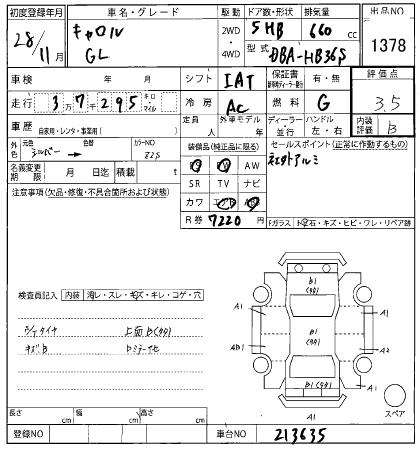 初度登録年月 車名・グレード 駆動 ドア数・形状 排気量 出品NO
28年 11月 キャロル GL 2WD・4WD 5HB 660cc 1378
型式 DBA-HB36S
車検 年 月 シフト IAT 保証書 有・無 評価点
走行 3万7千295 キロ・マイル 冷房 AC 燃料 G 3.5
車歴 自家用・レンタ・事業用( ) 定員 人 外車モデル 年 ディーラー・並行 ハンドル 左・右 内装評価 B
外色 元色 シルバー → 色替 カラーNO 82S
装備品(純正品に限る) セールスポイント(正常に作動するもの)
名義変更期限 月 日迄 積載 t
AW
SR TV ナビ
カワ
社外アルミ
R券 7220円
注意事項(欠品・修復・不具合箇所および状態)
Fガラス トビ石・キズ・ヒビ・ワレ・リペア跡
検査員記入 内装 汚レ・スレ・キズ・キレ・コゲ・穴
上面B(タタリ)
キズB
B1
(タタリ)
A1 A1
B1
(タタリ)
A2
B1(タタリ)
A1
A1
スペア
長さ cm 幅 cm 高さ cm
登録NO 車台NO 213635